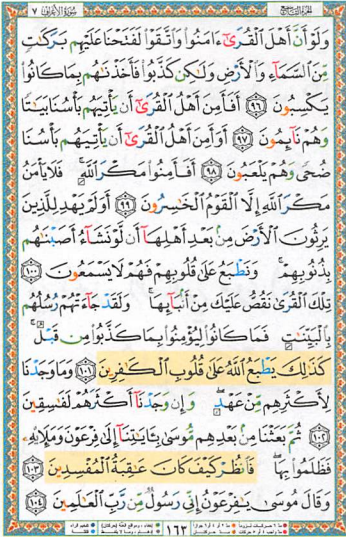 الجزء التاسع
سورة الأعراف ٧
وَلَوْ أَنَّ أَهْلَ ٱلْقُرَىٰٓ ءَامَنُوا۟ وَٱتَّقَوْا۟ لَفَتَحْنَا عَلَيْهِم بَرَكَٰتٍ
مِّنَ ٱلسَّمَآءِ وَٱلْأَرْضِ وَلَٰكِن كَذَّبُوا۟ فَأَخَذْنَٰهُم بِمَا كَانُوا۟
يَكْسِبُونَ ٩٦ أَفَأَمِنَ أَهْلُ ٱلْقُرَىٰٓ أَن يَأْتِيَهُم بَأْسُنَا بَيَٰتًا
وَهُمْ نَآئِمُونَ ٩٧ أَوَأَمِنَ أَهْلُ ٱلْقُرَىٰٓ أَن يَأْتِيَهُم بَأْسُنَا
ضُحًى وَهُمْ يَلْعَبُونَ ٩٨ أَفَأَمِنُوا۟ مَكْرَ ٱللَّهِ ۚ فَلَا يَأْمَنُ
مَكْرَ ٱللَّهِ إِلَّا ٱلْقَوْمُ ٱلْخَٰسِرُونَ ٩٩ أَوَلَمْ يَهْدِ لِلَّذِينَ
يَرِثُونَ ٱلْأَرْضَ مِنۢ بَعْدِ أَهْلِهَآ أَن لَّوْ نَشَآءُ أَصَبْنَٰهُم
بِذُنُوبِهِمْ ۚ وَنَطْبَعُ عَلَىٰ قُلُوبِهِمْ فَهُمْ لَا يَسْمَعُونَ ١٠٠
تِلْكَ ٱلْقُرَىٰ نَقُصُّ عَلَيْكَ مِنْ أَنۢبَآئِهَا ۚ وَلَقَدْ جَآءَتْهُمْ رُسُلُهُم
بِٱلْبَيِّنَٰتِ فَمَا كَانُوا۟ لِيُؤْمِنُوا۟ بِمَا كَذَّبُوا۟ مِن قَبْلُ ۚ
كَذَٰلِكَ يَطْبَعُ ٱللَّهُ عَلَىٰ قُلُوبِ ٱلْكَٰفِرِينَ ١٠١ وَمَا وَجَدْنَا
لِأَكْثَرِهِم مِّنْ عَهْدٍ ۖ وَإِن وَجَدْنَآ أَكْثَرَهُمْ لَفَٰسِقِينَ
١٠٢ ثُمَّ بَعَثْنَا مِنۢ بَعْدِهِم مُّوسَىٰ بِـَٔايَٰتِنَآ إِلَىٰ فِرْعَوْنَ وَمَلَإِي۟هِۦ
فَظَلَمُوا۟ بِهَا ۖ فَٱنظُرْ كَيْفَ كَانَ عَٰقِبَةُ ٱلْمُفْسِدِينَ ١٠٣
وَقَالَ مُوسَىٰ يَٰفِرْعَوْنُ إِنِّى رَسُولٌ مِّن رَّبِّ ٱلْعَٰلَمِينَ ١٠٤
١٦٣